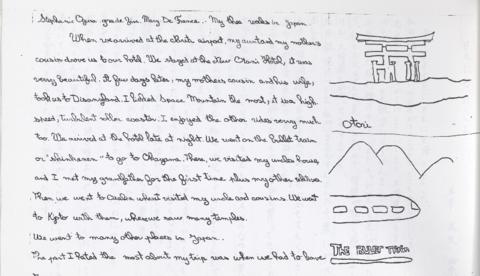 Stephanie Ogura grade five, May De France.. My three weeks in Japan
When we arrived at the chiba airport, my aunt and my mother's
cousin drove us to our hotel. We stayed at the New Otani Hotel, it was
very beautiful. A few days later, my mothers cousin and his wife,
took us to Disneyland. I liked Space Mountain the most, it was high
speed, turbulent roller coaster. I enjoyed the other rides very much
too. We arrived at the hotel late at night. We went on the bullet train
or "shinkansen" to go to Okayama. There, we visited my uncles house,
and I met my grandfather for the first time plus my other relatives.
Then we went to Osaka where I visited my uncle and cousins. We went
to Kyoto with them, where we saw many temples.
We went to many other places in Japan..
The part I hated the most about my trip was when we had to leave
Otori
The Bullet Train